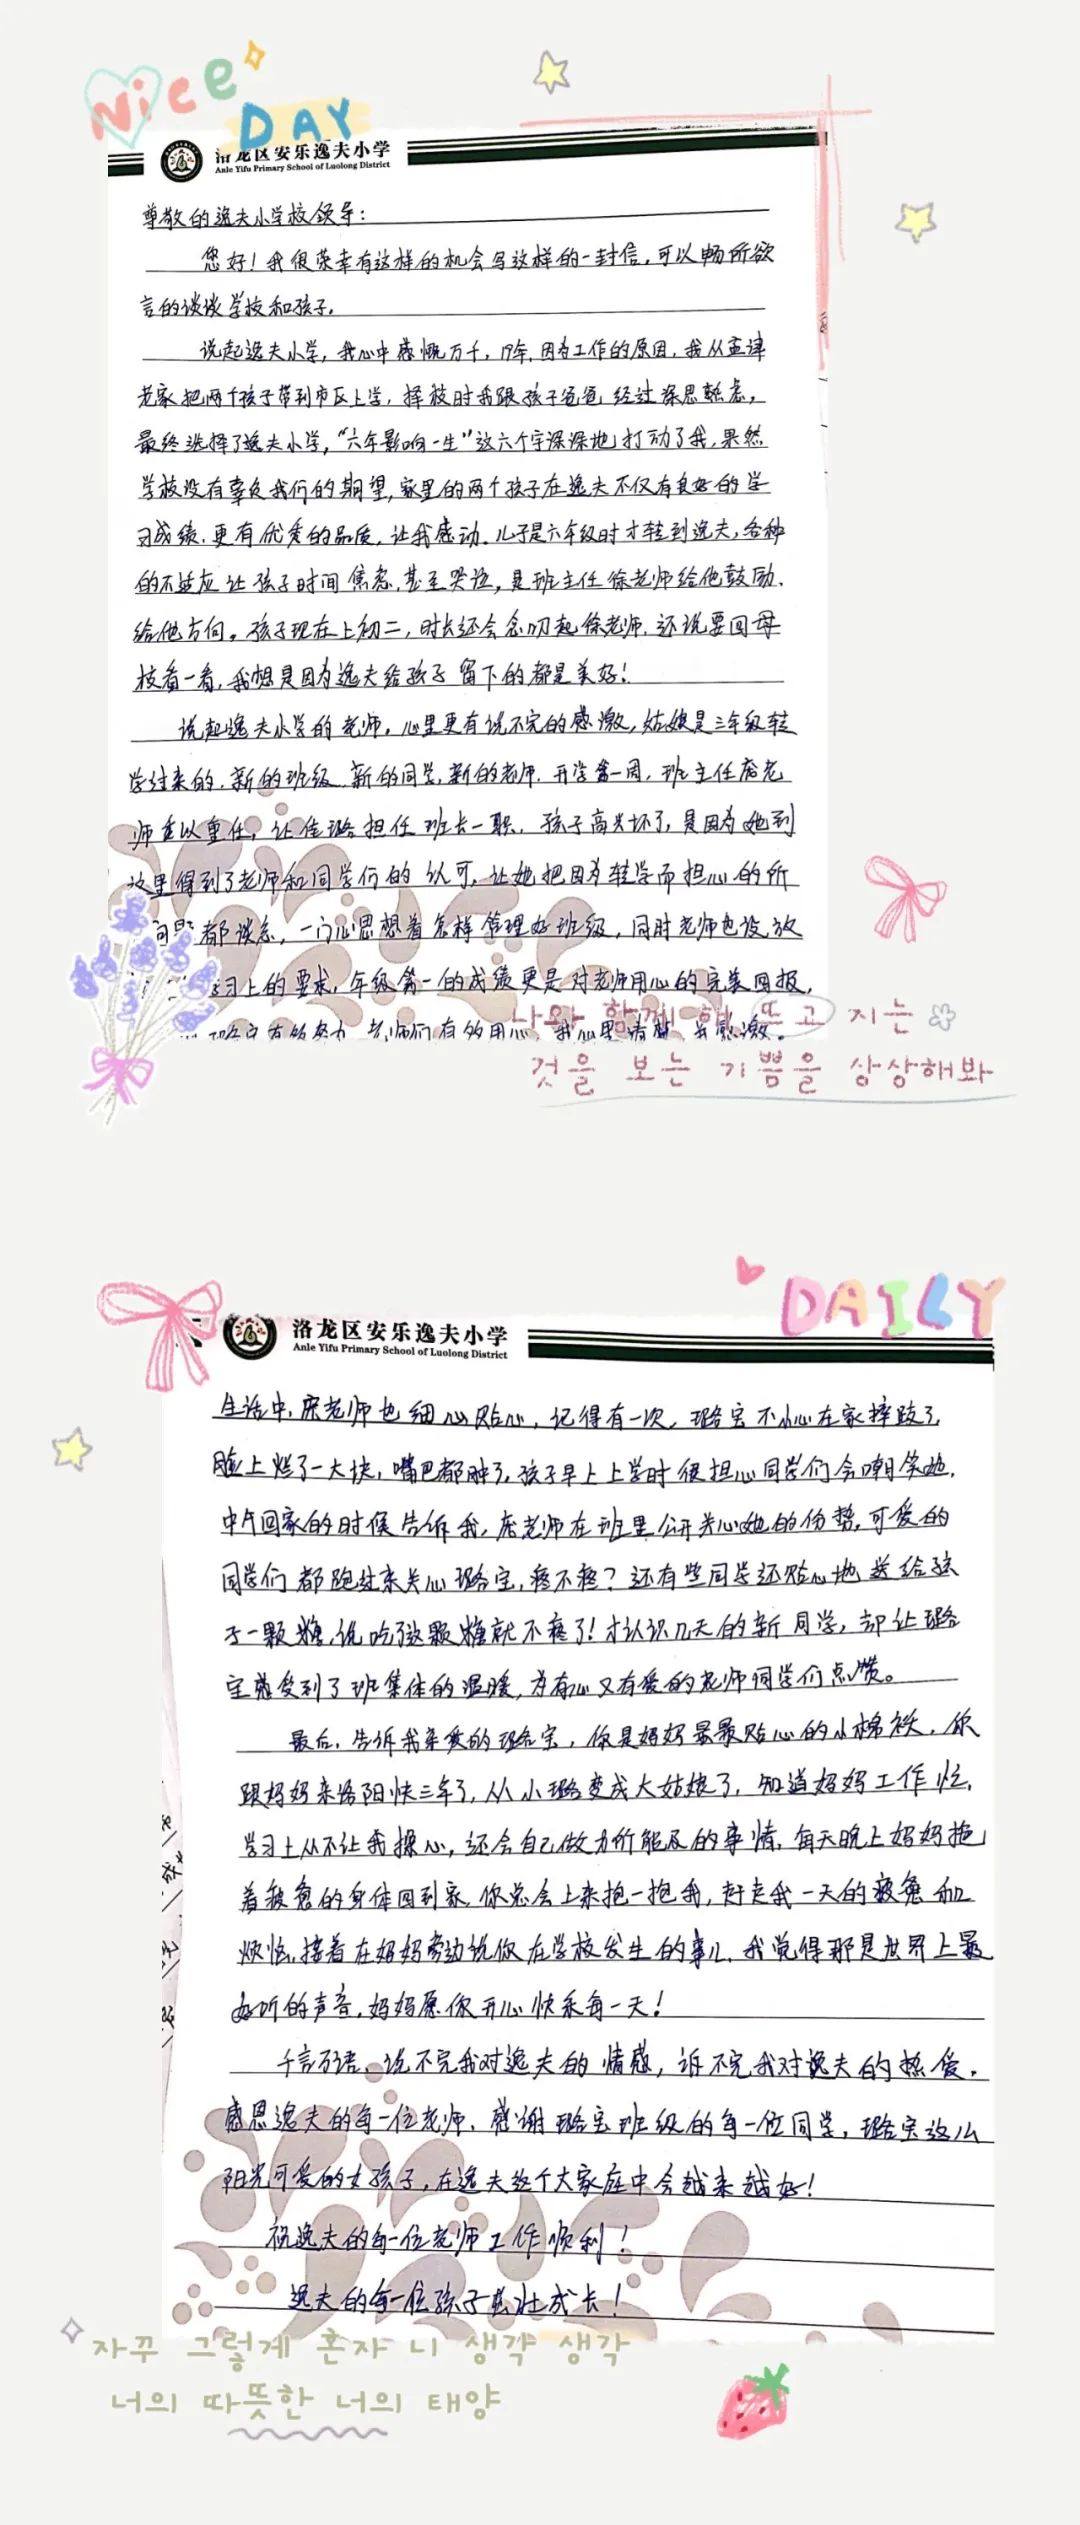 Nice
DAY
洛龙区安乐逸夫小学
Anle Yifu Primary School of Luolong District
尊敬的逸夫小学校领导：
您好！我很荣幸有这样的机会写这样的一封信，可以畅所欲
言的谈谈学校和孩子。
说起逸夫小学，我心中感慨万千，17年，因为工作的原因，我从孟津
老家把两个孩子带到市区上学，择校时我跟孩子爸爸经过深思熟虑，
最终选择了逸夫小学，“六年影响一生”这六个字深深地打动了我，果然
学校没有辜负我们的期望，家里的两个孩子在逸夫不仅有良好的学
习成绩，更有优秀的品质，让我感动。儿子是六年级时才转到逸夫，各种
的不适应让孩子时间焦虑，甚至哭泣，是班主任徐老师给他鼓励，
给他方向。孩子现在上初二，时长还会念叨起徐老师，还说要回母
校看一看，我想是因为逸夫给孩子留下的都是美好！
说起逸夫小学的老师，心里更有说不完的感激，姑娘是三年级转
学过来的，新的班级，新的同学，新的老师，开学第一周，班主任席老
师委以重任，让佳璐担任班长一职，孩子高兴坏了，是因为她到
这里得到了老师和同学们的认可，让她把因为转学而担心的所
问题都谈忘，一门心思想着怎样管理好班级，同时老师也没放
习上的要求，年级第一的成绩更是对老师用心的完美回报，
나와 함께 해 뜨고 지는
것을 보는 기쁨을 상상해봐
DAILY
洛龙区安乐逸夫小学
Anle Yifu Primary School of Luolong District
生活中，席老师也细心贴心，记得有一次，璐宝不小心在家摔跤了，
脸上烂了一大块，嘴巴都肿了，孩子早上上学时很担心同学们会嘲笑她，
中午回家的时候告诉我，席老师在班里公开关心她的伤势，可爱的
同学们都跑过来关心璐宝，疼不疼？还有些同学还贴心地送给孩
子一颗糖，说吃了这颗糖就不疼了！才认识几天的新同学，却让璐
宝感受到了班集体的温暖，为有心又有爱的老师同学们点赞。
最后，告诉我亲爱的璐宝，你是妈妈最最贴心的小棉袄，你
跟妈妈来洛阳快三年了，从小璐变成大姑娘了，知道妈妈工作忙，
学习上从不让我操心，还会自己做力所能及的事情，每天晚上妈妈拖
着疲惫的身体回到家，你总会上来抱一抱我，赶走我一天的疲惫和
烦恼，接着在妈妈旁边说你在学校发生的事儿，我觉得那是世界上最
好听的声音，妈妈愿你开心快乐每一天！
千言万语，说不完我对逸夫的情感，诉不完我对逸夫的热爱。
感恩逸夫的每一位老师，感谢璐宝班级的每一位同学，璐宝这么
阳光可爱的女孩子，在逸夫这个大家庭中会越来越好！
祝逸夫的每一位老师工作顺利！
逸夫的每一位孩子茁壮成长！
자꾸 그렇게 혼자 니 생각 생각
너의 따뜻한 너의 태양